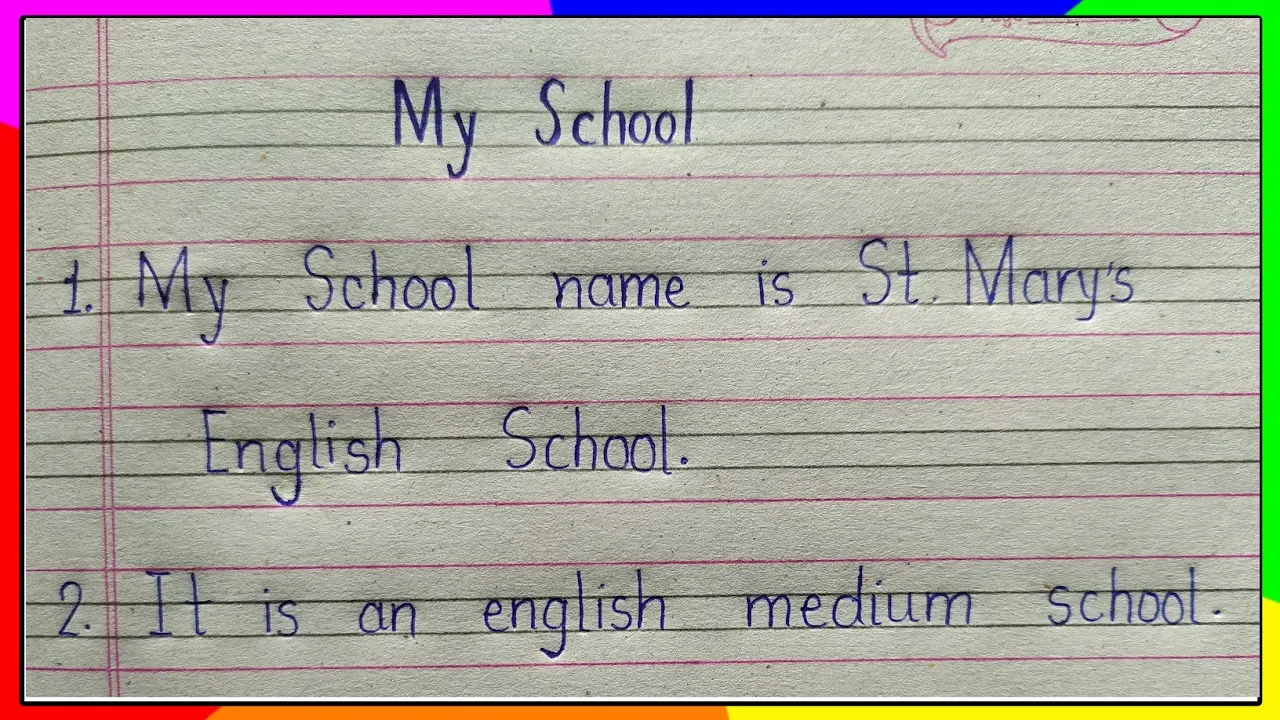 My School
1. My School name is St. Mary's
English School.
2. It is an english medium school.